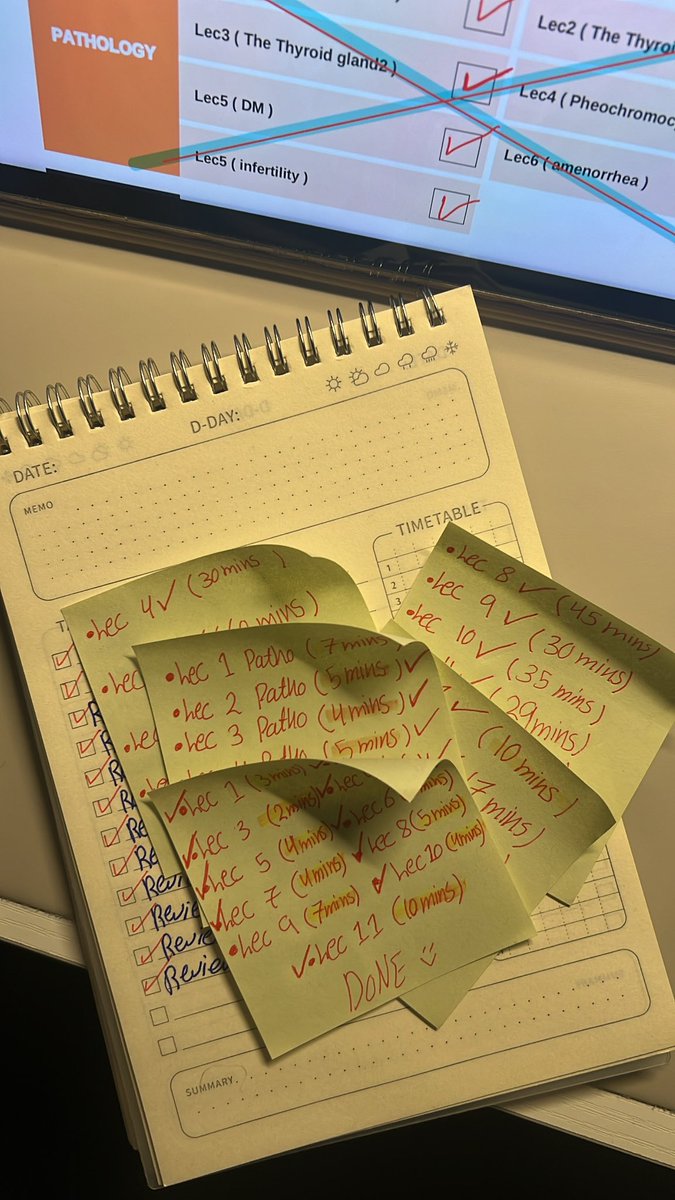 PATHOLOGY
Lec3 ( The Thyroid gland2 )
Lec2 ( The Thyroi
Lec5 ( DM )
Lec4 ( Pheochromoc
Lec5 ( infertility )
Lec6 ( amenorrhea )
DATE:
D-DAY:
MEMO
TIMETABLE
1
2
3
• Lec 4 ✓ (30 mins)
mins)
• Lec
• Lec
• Lec 8 ✓ (45 mins)
• Lec 9 ✓ (30 mins)
• Lec 10 ✓ (35 mins)
✓ (29 mins)
• Lec 1 Patho (7 mins)
• Lec 2 Patho (5 mins) ✓
• Lec 3 Patho (4 mins) ✓
Patho (5 mins) ✓
(10 mins)
(7 mins)
✓ • Lec 1 (3 mins) ✓ • Lec
✓ • Lec 3 (2 mins) ✓ • Lec 6 mins)
✓ • Lec 5 (4 mins) ✓ • Lec 8 (5 mins)
✓ • Lec 7 (4 mins) ✓ • Lec 10 (4 mins)
• Lec 9 (7 mins)
✓ • Lec 11 (10 mins)
DONE
R
R
R
R
Re
Re
Revi
Revie
Revie
Revie
SUMMARY